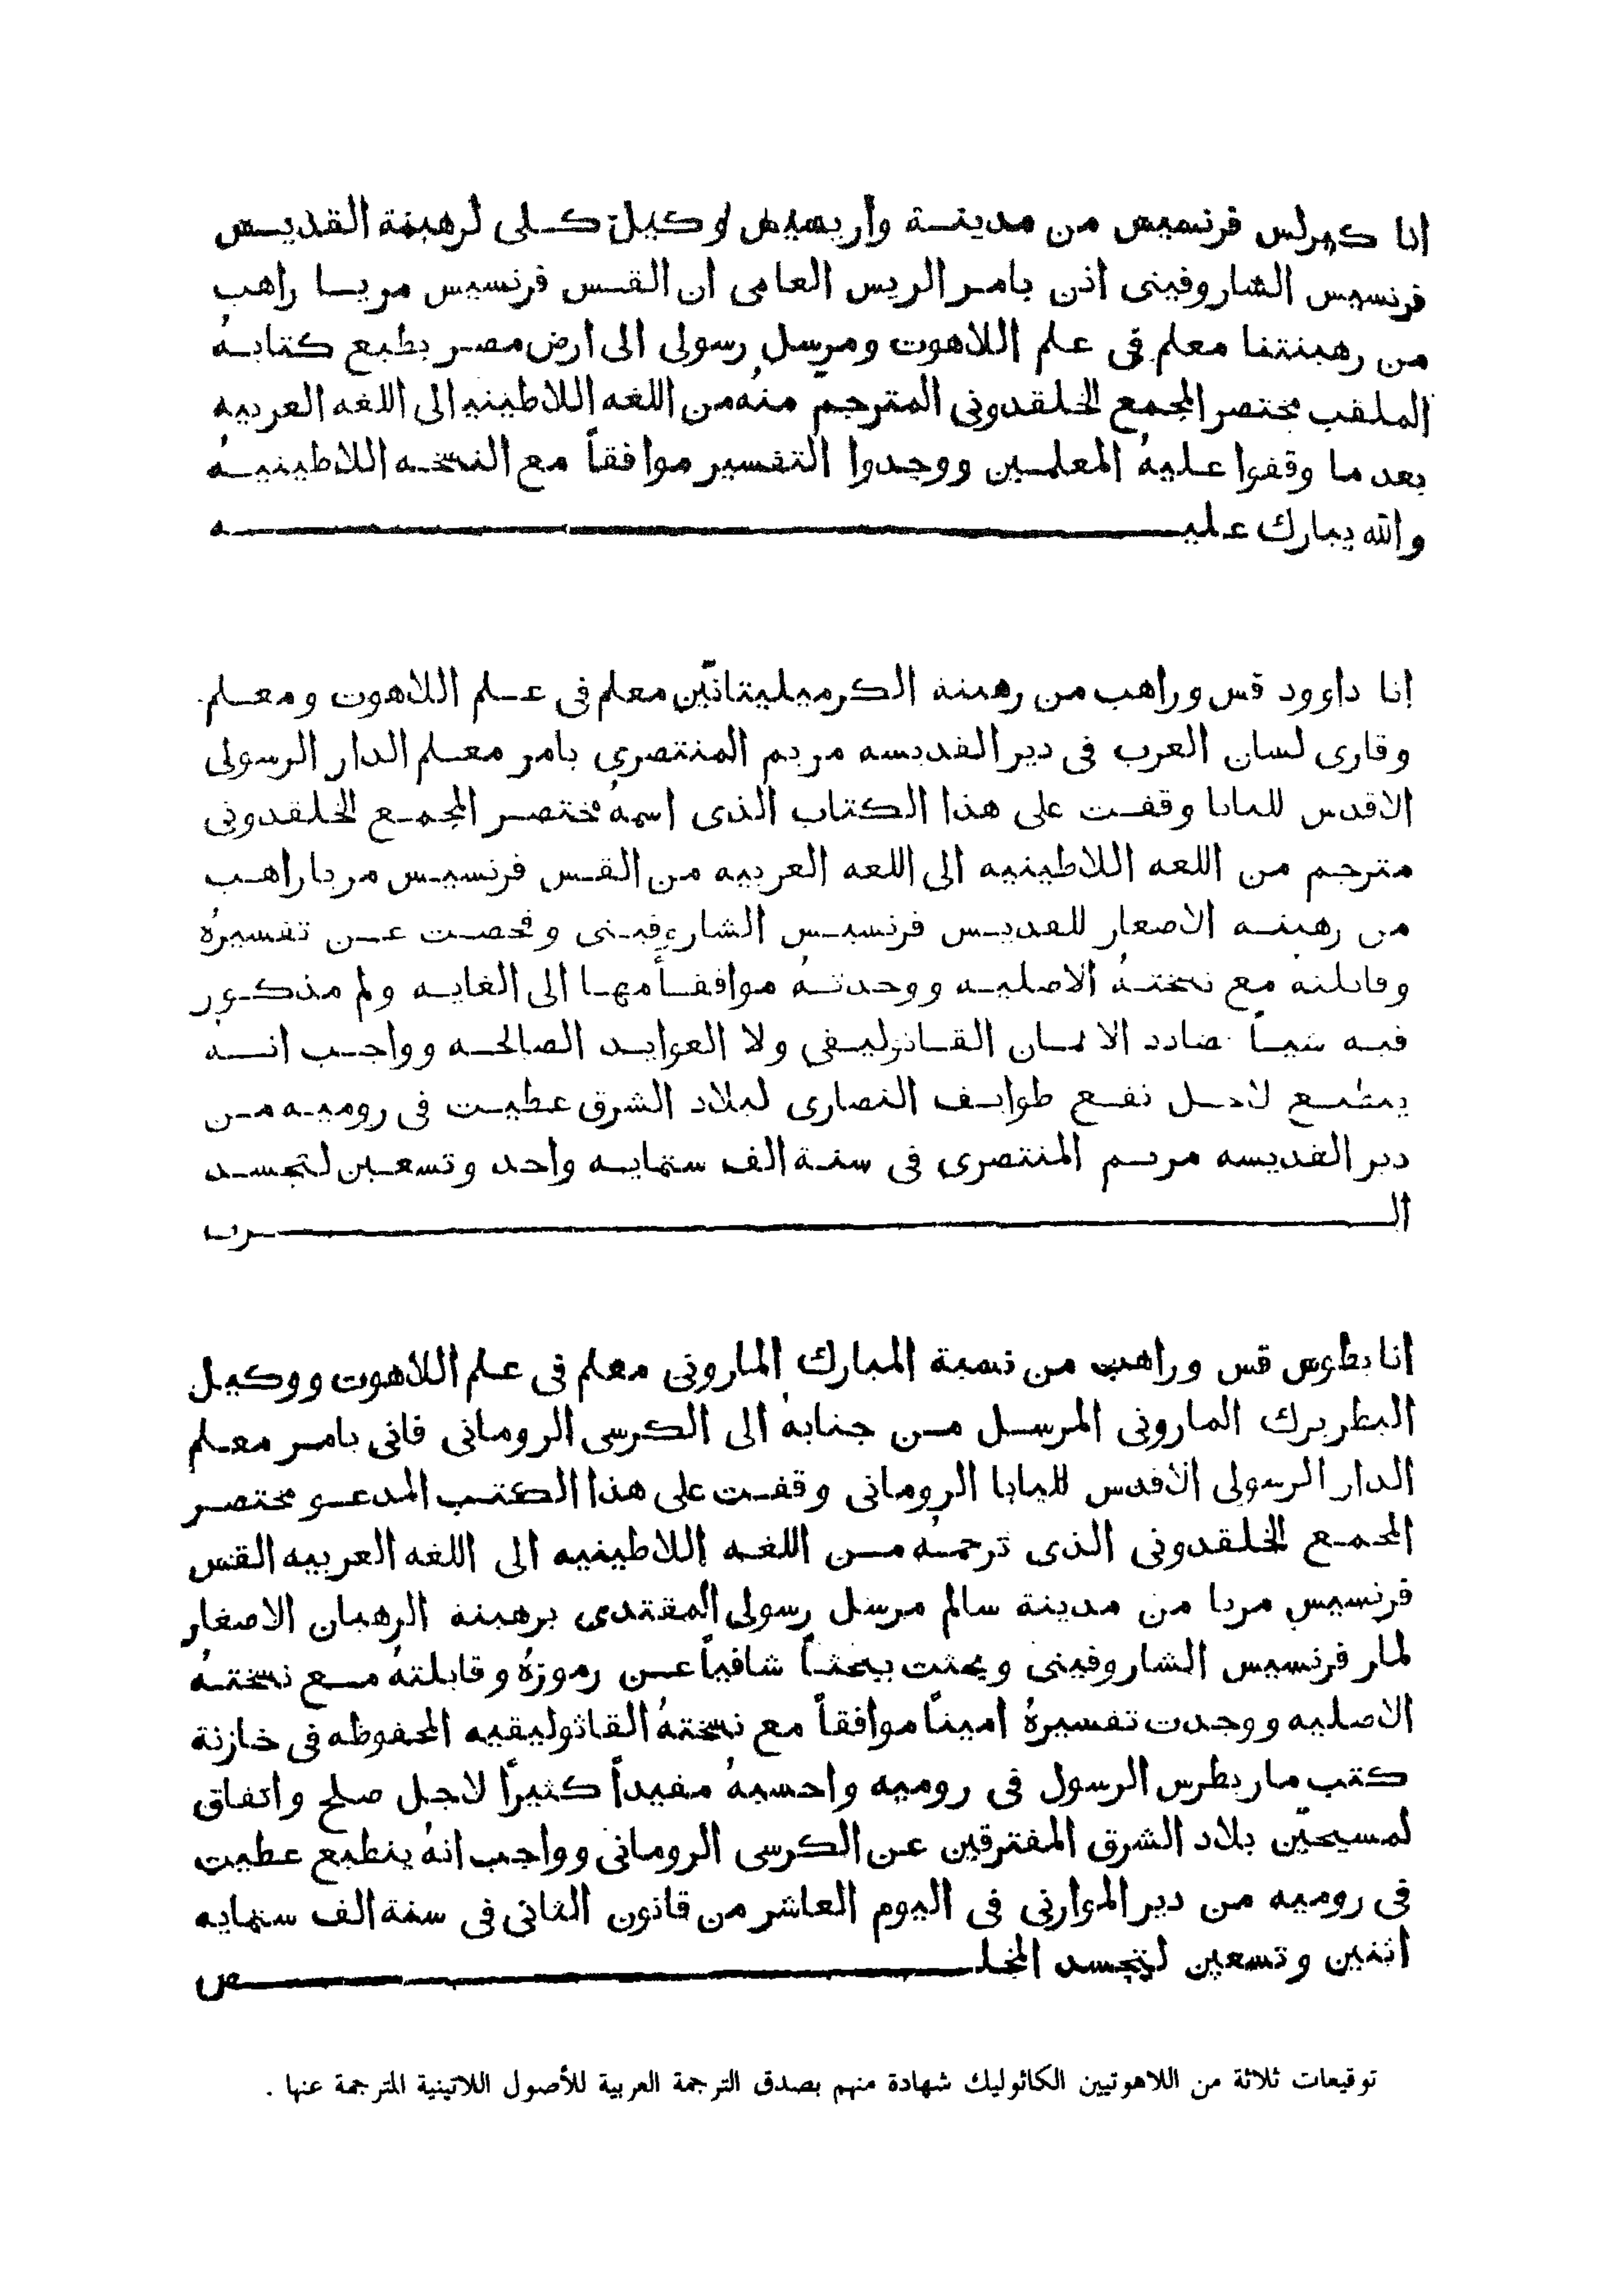 انا كرلس فرنسيس من مدينة واريسيس وكيل كلى لرهبنة القديس
فرنسيس الشاروفينى اذن بامر الريس العامى ان القس فرنسيس مريا راهب
من رهبنتنا معلم فى علم اللاهوت ومرسل رسولى الى ارض مصر بطبع كتابهُ
الملقب مختصر المجمع الخلقدونى المترجم منهُ من اللغه اللاطينيه الى اللغه العربيه
بعد ما وقفوا عليهُ المعلمين ووجدوا التفسير موافقاً مع النسخه اللاطينيهُ
والله يبارك عليه
انا داوود قس وراهب من رهبنه الكرميليتانيّن معلم فى علم اللاهوت ومعلم
وقارى لسان العرب فى دير القديسه مريم المنتصرى بامر معلم الدار الرسولى
الاقدس للبابا وقفت على هذا الكتاب الذى اسمهُ مختصر المجمع الخلقدونى
مترجم من اللغه اللاطينيه الى اللغه العربيه من القس فرنسيس مريا راهب
من رهبنه الاصغار للقديس فرنسيس الشاروفينى وفحصت عن تفسيرهُ
وقابلته مع نسختهُ الاصليه ووجدتهُ موافقاً مهما الى الغايه ولم مذكور
فيه شياً يضادد الايمان القاثوليقى ولا العوايد الصالحه وواجب انه
ينطبع لاجل نفع طوايف النصارى لبلاد الشرق عطيت فى روميه من
دير القديسه مريم المنتصرى فى سنة الف ستمايه واحد وتسعين لتجسد
الرب
انا بطرس قس وراهب من نسبة المبارك المارونى معلم فى علم اللاهوت ووكيل
البطريرك المارونى المرسل من جنابهُ الى الكرسى الرومانى فانى بامر معلم
الدار الرسولى الاقدس للبابا الرومانى وقفت على هذا الكتب المدعو مختصر
المجمع الخلقدونى الذى ترجمهُ من اللغه اللاطينيه الى اللغه العربيه القس
فرنسيس مريا من مدينة سالم مرسل رسولى المقتدى برهبنة الرهبان الاصغار
لمار فرنسيس الشاروفينى وبحثت ببحثاً شافياً عن رموزهُ وقابلتهُ مع نسختهُ
الاصليه ووجدت تفسيرهُ اميناً موافقاً مع نسختهُ القاثوليقيه المحفوظه فى خازنة
كتب مار بطرس الرسول فى روميه واحسبهُ مفيداً كثيراً لاجل صلح واتفاق
لمسيحيّن بلاد الشرق المفترقين عن الكرسى الرومانى وواجب انهُ ينطبع عطيت
فى روميه من دير الموارنى فى اليوم العاشر من قانون الثانى فى سنة الف ستمايه
اثنين وتسعين لتجسد المخلص
توقيعات ثلاثة من اللاهوتيين الكاثوليك شهادة منهم بصدق الترجمة العربية للأصول اللاتينية المترجمة عنها .